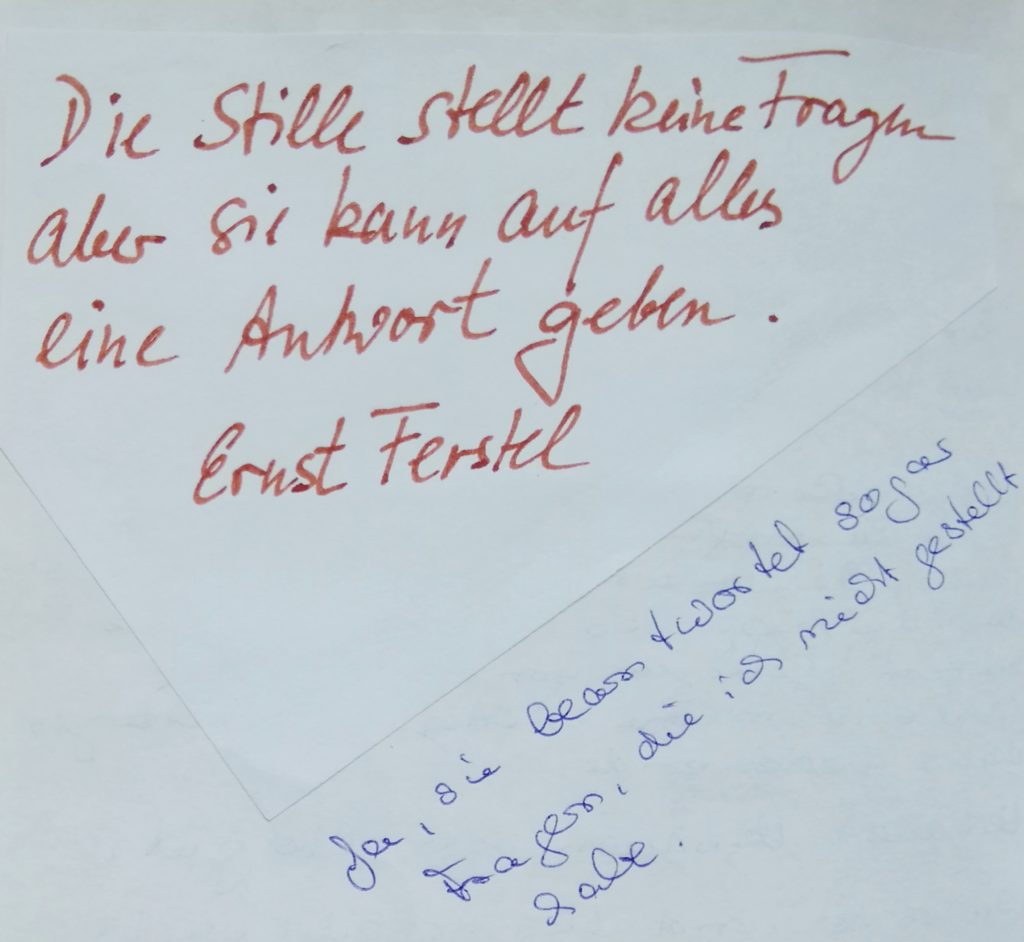 Die Stille stellt keine Fragen
aber sie kann auf alles
eine Antwort geben.
Ernst Ferstl
Ja, sie beantwortet sogar
Fragen, die ich nicht gestellt
habe.